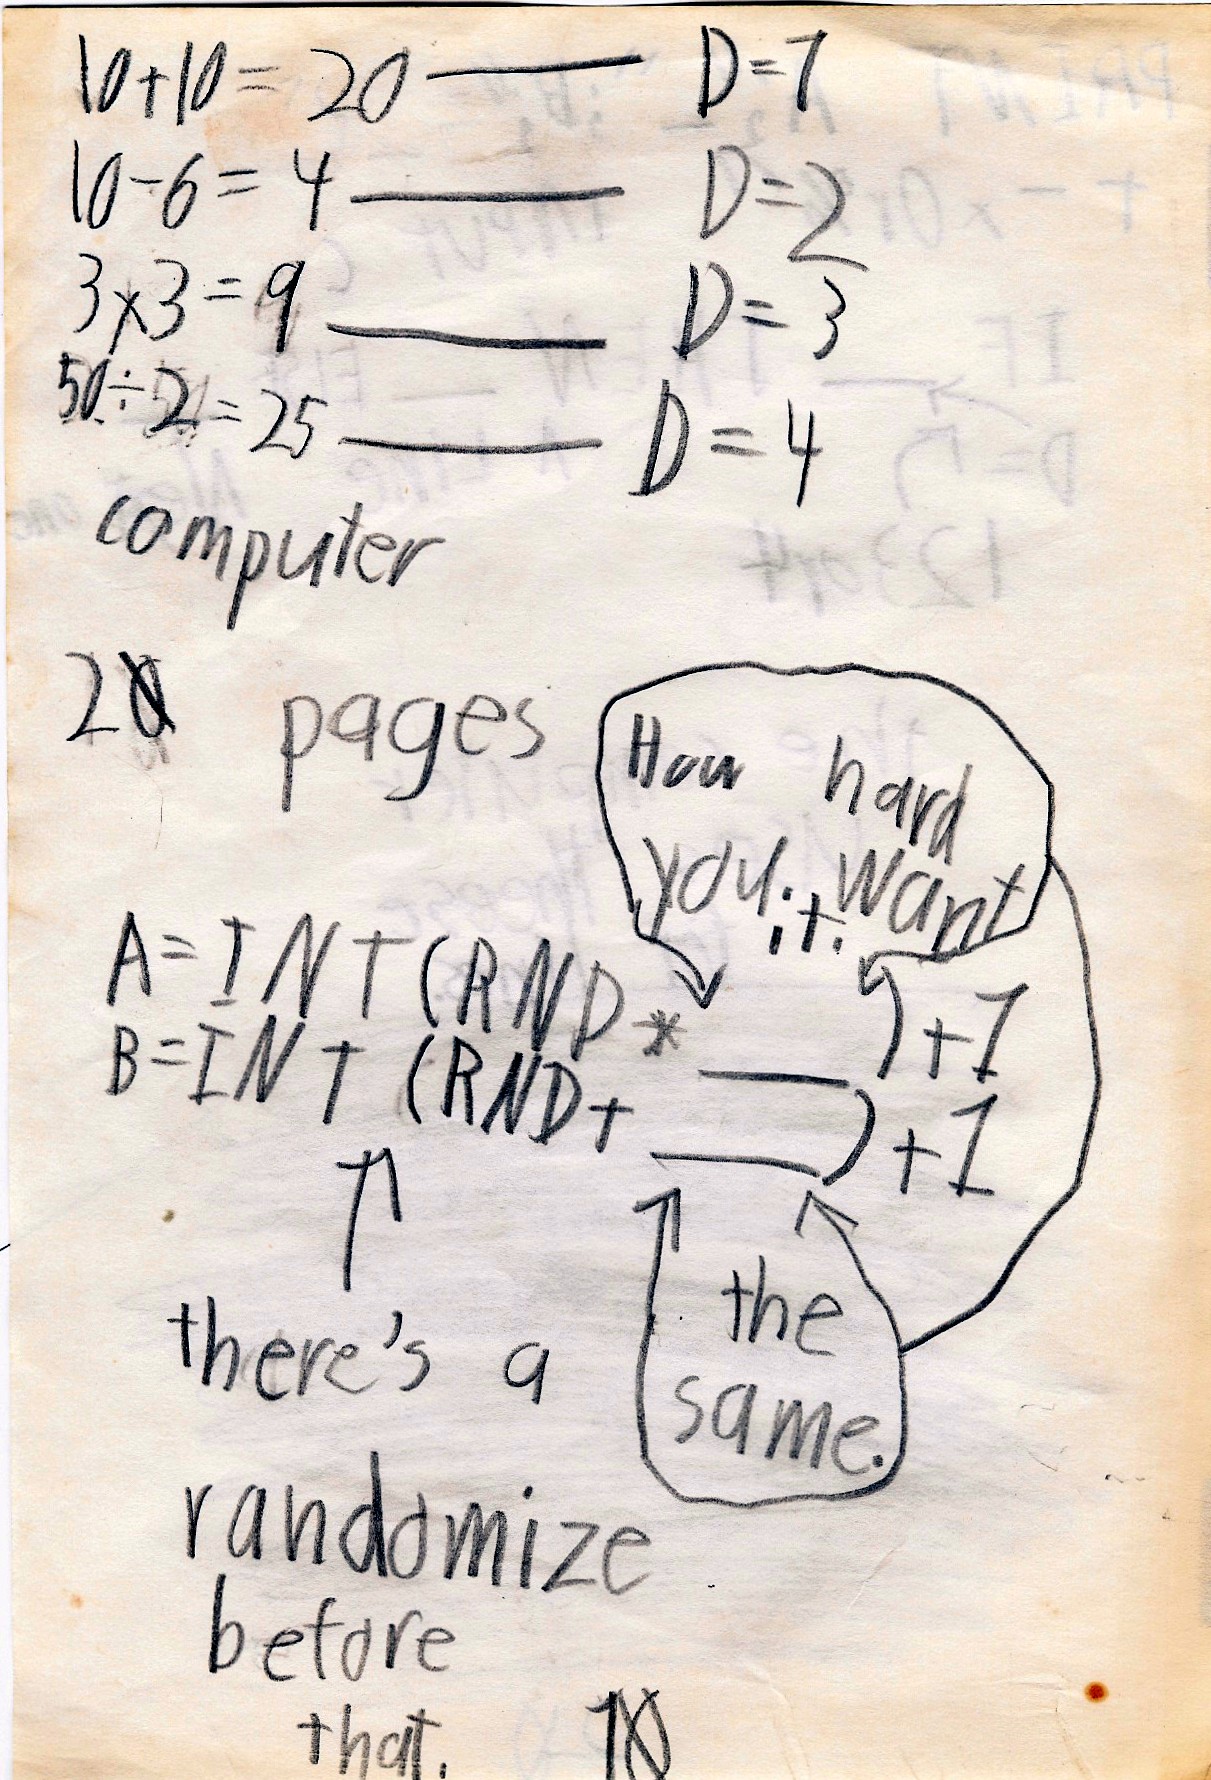 10+10= 20 — D=1
10-6= 4 — D=2
3x3=9 — D=3
50÷2=25 — D=4
computer
20 pages
How hard
you want
it.
A=INT(RND* __)+1
B=INT(RND+ __)+1
the
same.
there's a
randomize
before
that.
10